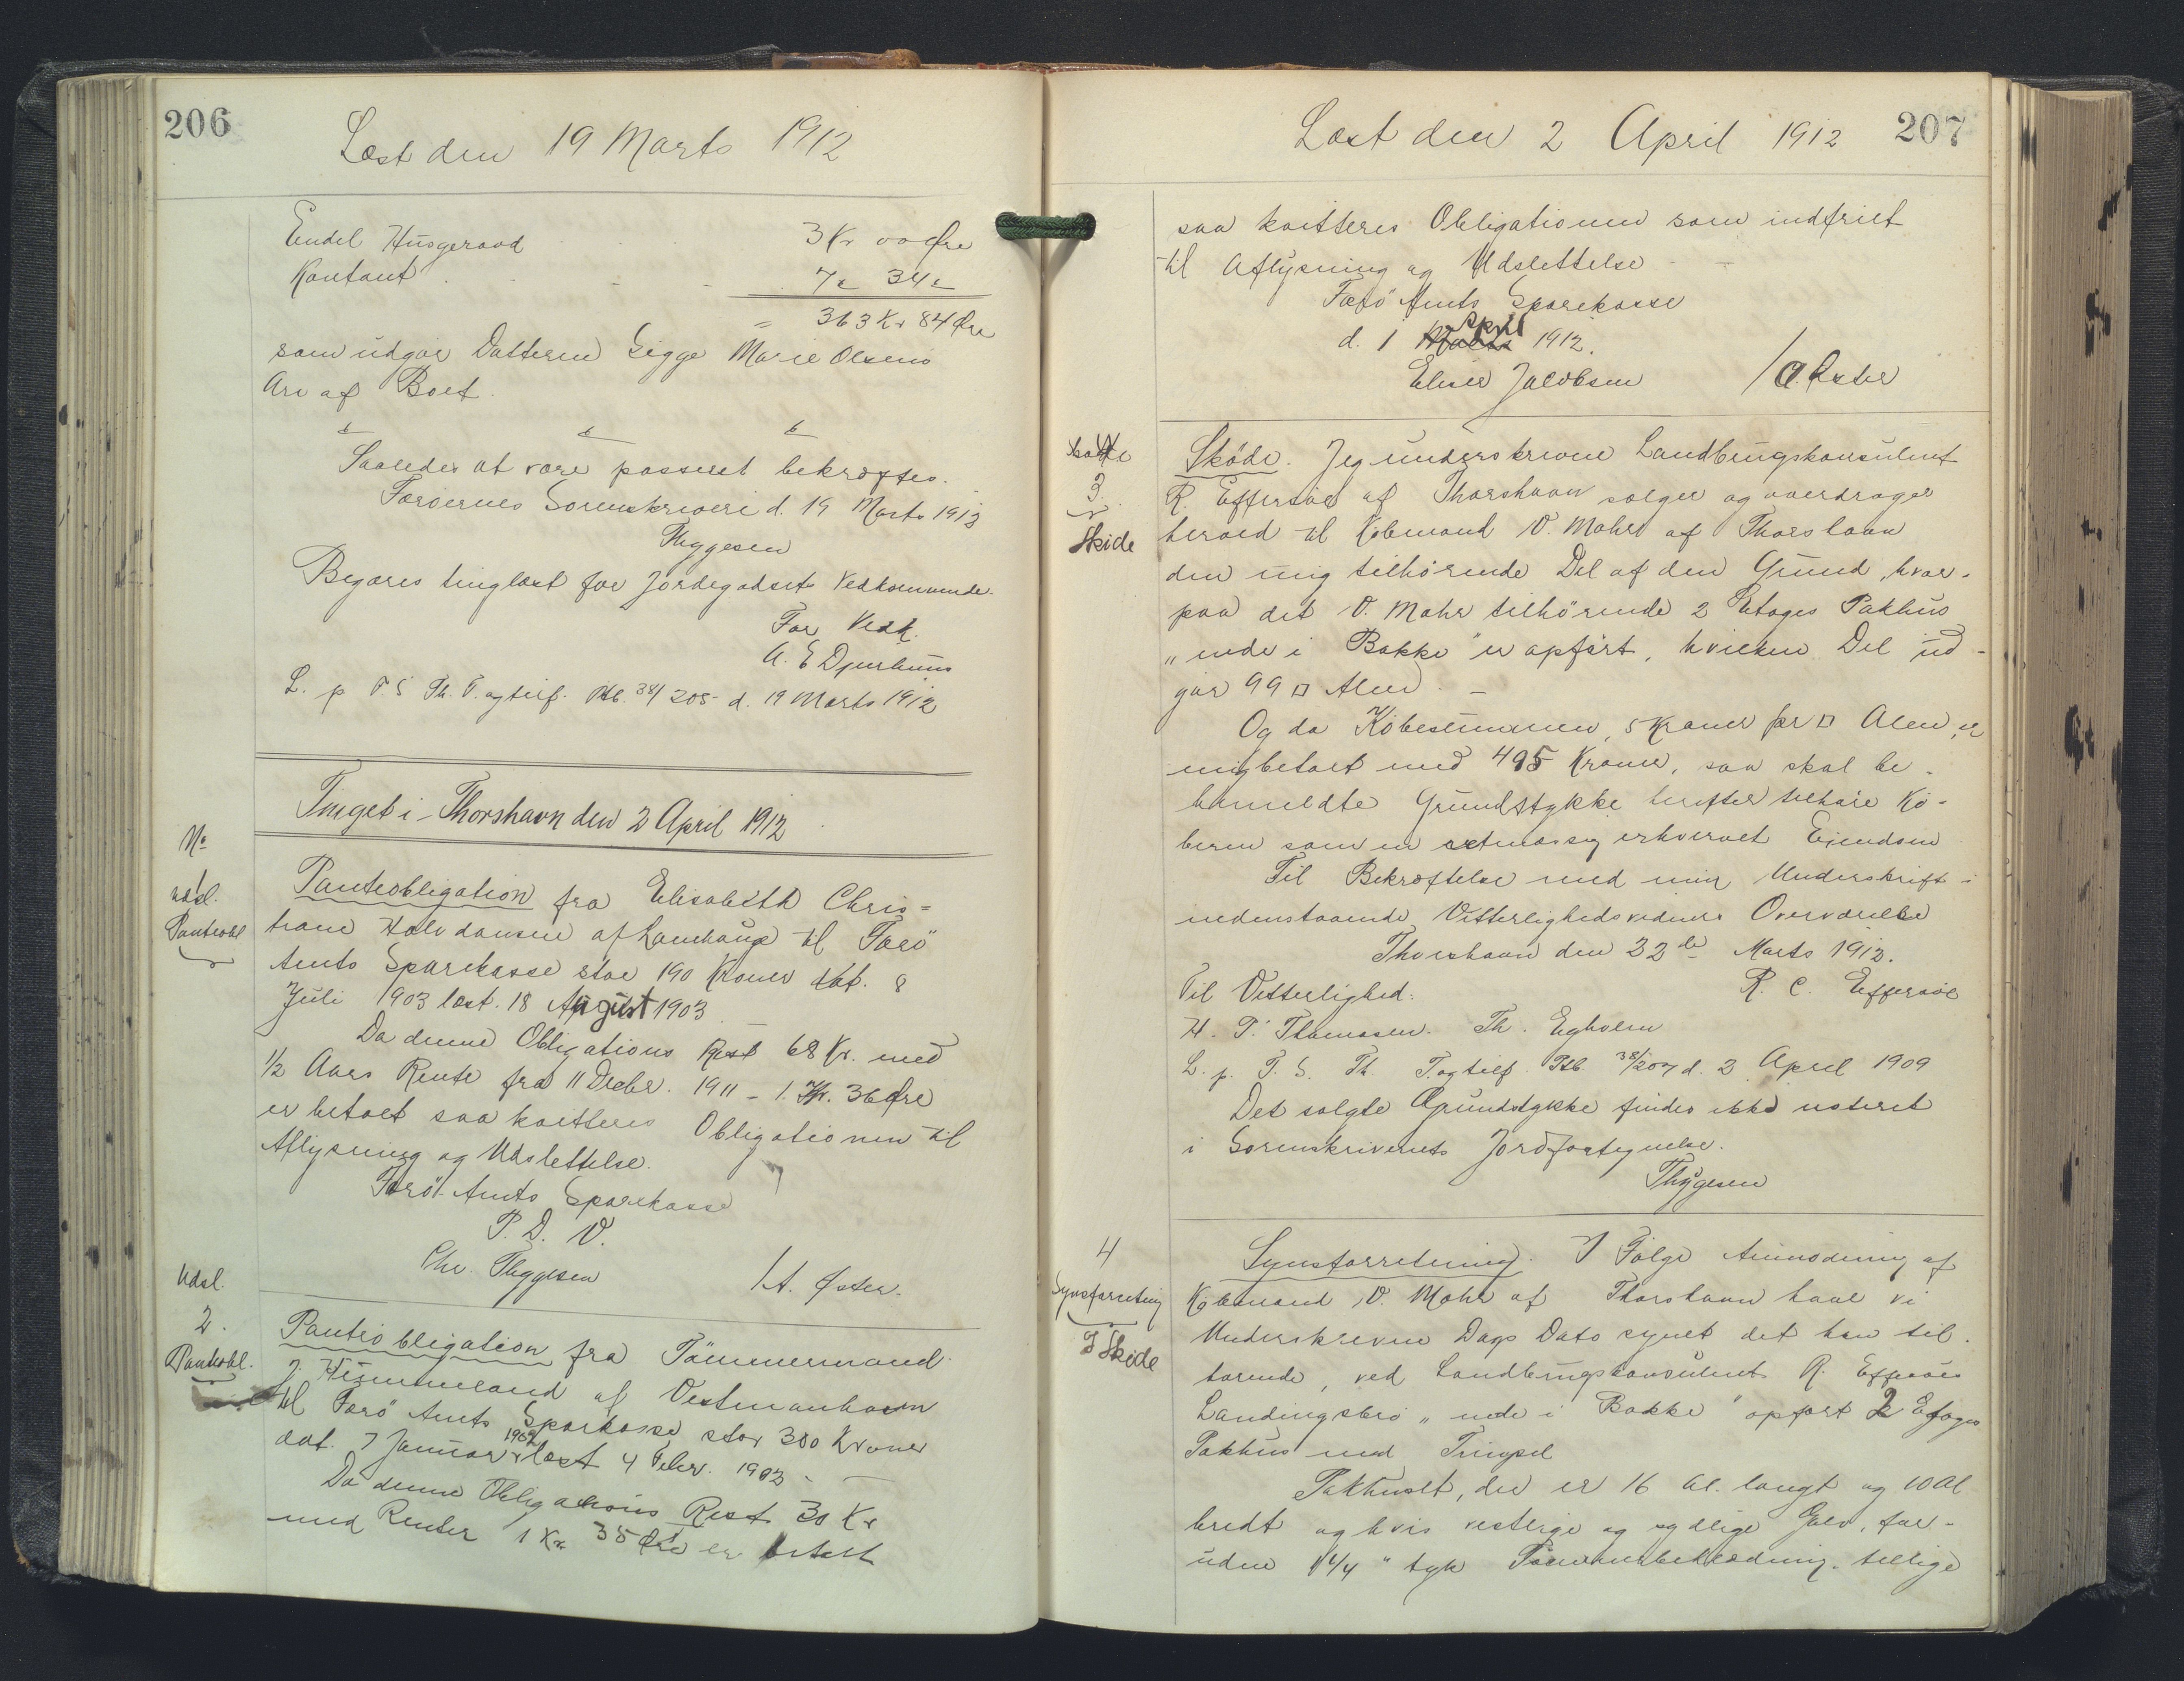 206
Læst den 19 Marts 1912
Endel Husgeraad 3 Kr 00 Øre
Kontant 7 " 34 "
= 363 Kr 84 Øre
som udgør Datteren Sigge Marie Olsens
Arv af Boet.
Saaledes at være passeret bekræftes.
Færøernes Sorenskriveri d. 19 Marts 1912
Thygesen
Begæres tinglæst for Jordegodsets Vedkommende.
For Vedk.
A. E Djurhuus
L. p T. S Th. T. og tilf. Ptb. 38/205 d. 19 Marts 1912
Tinget i Thorshavn den 2 April 1912
No
1
Udsl.
Panteobl
Panteobligation fra Elisabeth Chris=
tiane Halvdansen af Lamhauge til Færö
Amts Sparekasse stor 190 Kroner dat. 8
Juli 1903 læst. 18 August 1903
Da denne Obligations Rest 68 Kr. med
1/2 Aars Rente fra 11 Decbr. 1911 - 1. Kr. 36 Øre
er betalt saa kvitteres Obligationen til
Aflysning og Udslettelse.
Færö Amts Sparekasse
P. D. V.
Chr. Thygesen / A. Øster.
Udsl.
2.
Panteobl.
Panteobligation fra Tömmermand
J. Heimmeland af Vestmanhavn
til Færö Amts Sparkasse stor 300 Kroner
dat. 7 Januar 1902 læst 4 Febr. 1902 -
Da denne Obligations Rest 30 Kr
med Renter 1 Kr 35 Øre er betalt
Læst den 2 April 1912 207
saa kvitteres Obligationen som indfriet
til Aflysning og Udslettelse -
Færö Amts Sparekasse
d. 1 April 1912.
Elieser Jacobsen / A. Øster
3.
Skide
Sköde. Jeg underskrevne Landbrugskonsulent
R. Effersöe af Thorshavn sælger og overdrager
herved til Köbmand V. Mohr af Thorshavn
den mig tilhörende Del af den Grund, hvor-
paa det V. Mohr tilhörende 2 Etages Pakhus
"inde i Bakke" er opfört, hvilken Del ud-
gör 99 □ Alen. -
Og da Köbesummen, 5 Kroner pr □ Alen, er
mig betalt med 495 Kroner, saa skal be-
hameldte Grundstykke herefter tilhöre Kö-
beren som en retmæssig erhvervet Ejendom
Til Bekræftelse med min Underskrift i
nedenstaaende Vitterlighedsvidners Overværelse
Thorshavn den 22de Marts 1912.
Til Vitterlighed: R. C. Effersöe
H. P. Thomassen. Th. Egholm
L. p. T. S. Th. T. og tilf. Ptb. 38/207 d. 2 April 1909
Det solgte Grundstykke findes ikke noteret
i Sorenskriveriets Jordfortegnelse.
Thygesen
4
Synsforretning
I Skide
Synsforretning. I Fölge Anmodning af
Köbmand V. Mohr af Thorshavn have vi
Underskrevne Dags Dato synet det ham til-
hörende, ved Landbrugskonsulent R. Effersöes
Landingsbro "inde i Bakke" opfört 2 Etages
Pakhus med Trimpel
Pakhuset, der er 16 Al. langt og 10 Al
bredt og hvis vestlige og sydlige Gavl, for-
uden 1 1/4" tyk Tömmerbeklædning tillige